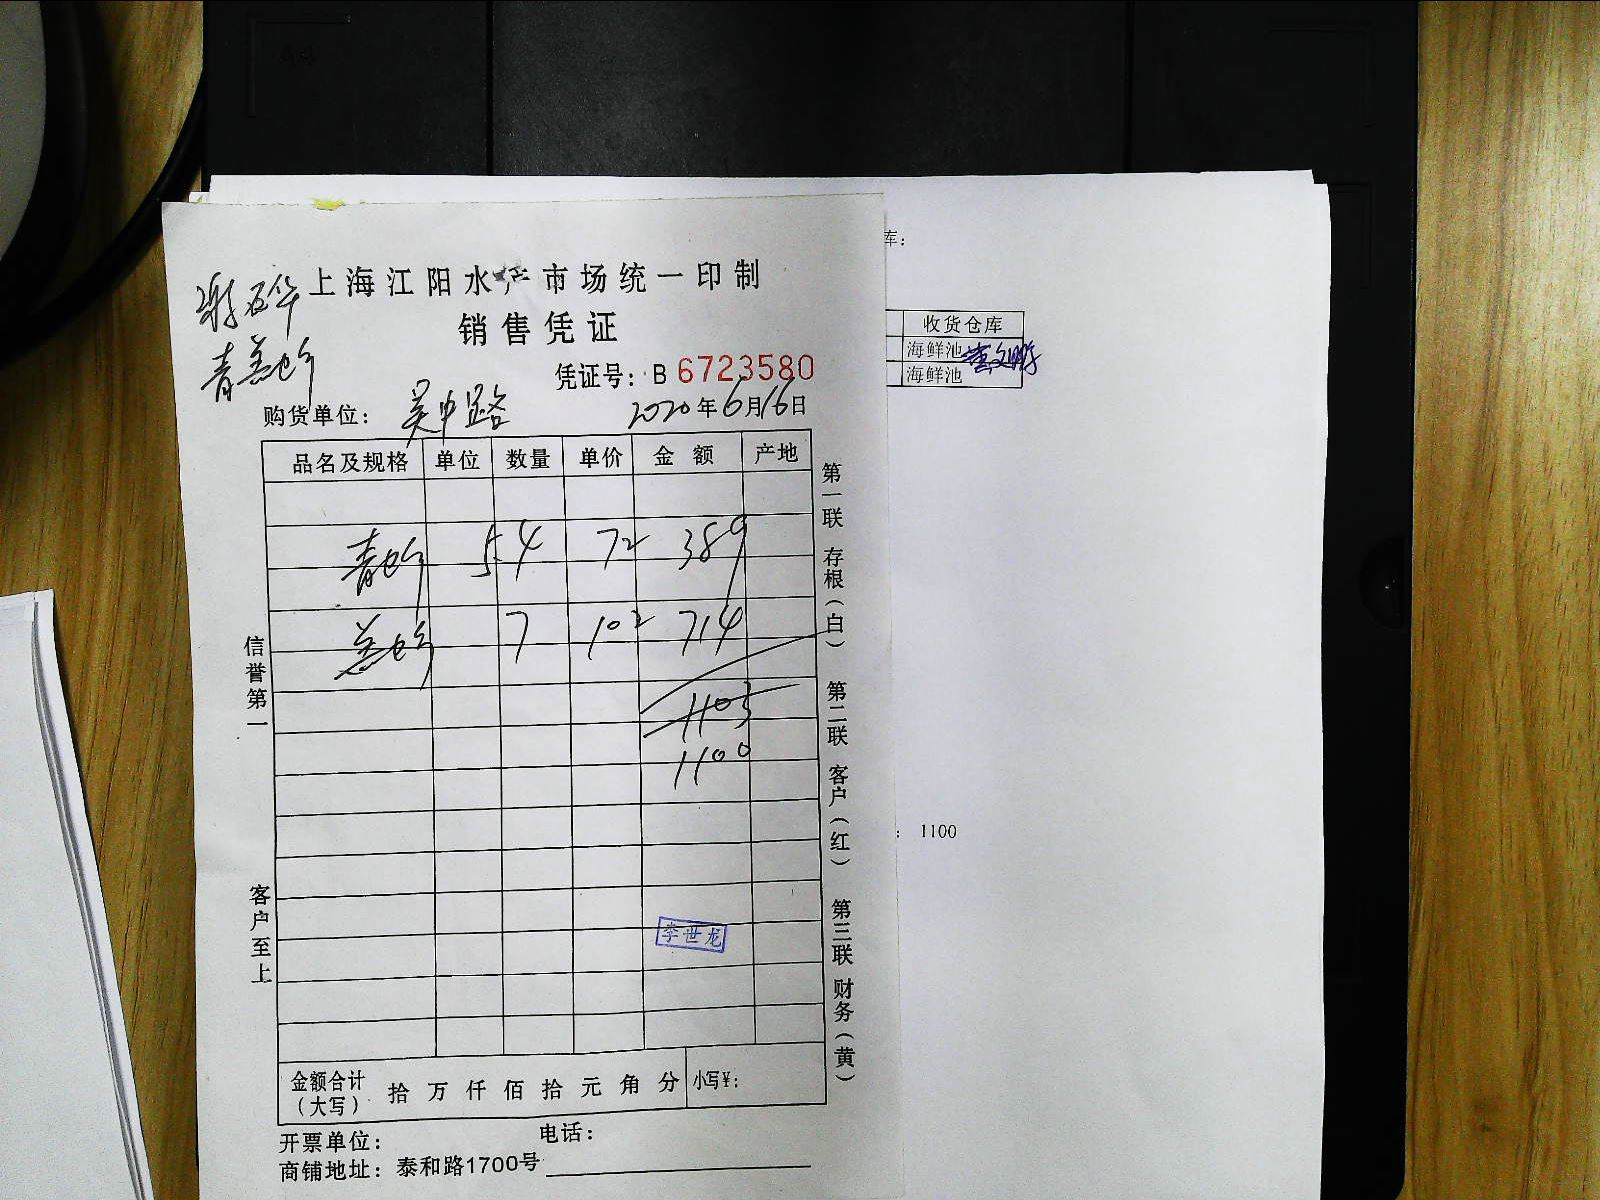 库：
上海江阳水产市场统一印制
销售凭证
收货仓库
海鲜池
海鲜池
凭证号：B 6723580
购货单位：吴中路 2020年6月16日
品名及规格 单位 数量 单价 金 额 产地
青 5.4 72 389
7 102 714
1103
1100
： 1100
李世龙
信誉第一
客户至上
第一联 存根（白） 第二联 客户（红） 第三联 财务（黄）
金额合计（大写） 拾 万 仟 佰 拾 元 角 分 小写¥：
开票单位： 电话：
商铺地址：泰和路1700号